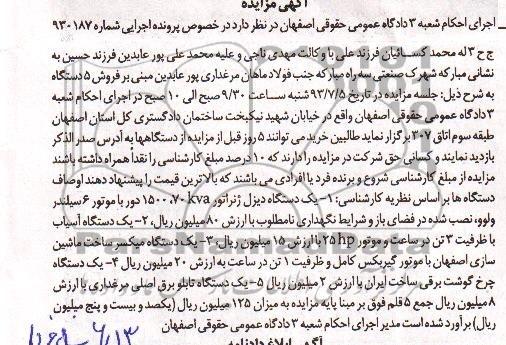 آگهی مزایده
اجرای احکام شعبه ۳ دادگاه عمومی حقوقی اصفهان در نظر دارد در خصوص پرونده اجرایی شماره ۹۳۰۱۸۷
ج ح ۳ له محمد کسائیان فرزند علی با وکالت مهدی ناجی و علیه محمد علی پور عابدین فرزند حسین به
نشانی مبارکه شهرک صنعتی سه راه مبارکه جنب فولاد ماهان مرغداری پور عابدین مبنی بر فروش ۵ دستگاه
به شرح ذیل: جلسه مزایده در تاریخ ۹۳/۷/۵ شنبه ساعت ۹/۳۰ صبح الی ۱۰ صبح در اجرای احکام شعبه
۳ دادگاه عمومی حقوقی اصفهان واقع در خیابان شهید نیکبخت ساختمان دادگستری کل استان اصفهان
طبقه سوم اتاق ۳۰۷ برگزار نماید طالبین خرید می توانند ۵ روز قبل از مزایده از دستگاهها به آدرس صدر الذکر
بازدید نمایند و کسانی حق شرکت در مزایده را دارند که ۱۰ درصد مبلغ کارشناسی را نقداً همراه داشته باشند
مزایده از مبلغ کارشناسی شروع و برنده فرد یا افرادی می باشند که بالاترین قیمت را پیشنهاد دهند اوصاف
دستگاه ها بر اساس نظریه کارشناسی: ۱- یک دستگاه دیزل ژنراتور ۷۰kva، ۱۵۰۰ دور با موتور ۶ سیلندر
ولوو، نصب شده در فضای باز و شرایط نگهداری نامطلوب با ارزش ۸۰ میلیون ریال، ۲- یک دستگاه آسیاب
با ظرفیت ۳ تن در ساعت و موتور ۲۵ hp با ارزش ۱۵ میلیون ریال ۳- یک دستگاه میکسر ساخت ماشین
سازی اصفهان با موتور گیربکس کامل و ظرفیت ۱ تن در ساعت به ارزش ۲۰ میلیون ریال ۴- یک دستگاه
چرخ گوشت برقی ساخت ایران با ارزش ۲ میلیون ریال ۵- یک دستگاه تابلو برق اصلی مرغداری با ارزش
۸ میلیون ریال جمع ۵ قلم فوق بر مبنا پایه مزایده به میزان ۱۲۵ میلیون ریال (یکصد و بیست و پنج میلیون
ریال) برآورد شده است مدیر اجرای احکام شعبه ۳ دادگاه عمومی حقوقی اصفهان
آگهی ابلاغ دادنامه
۶/۱۳